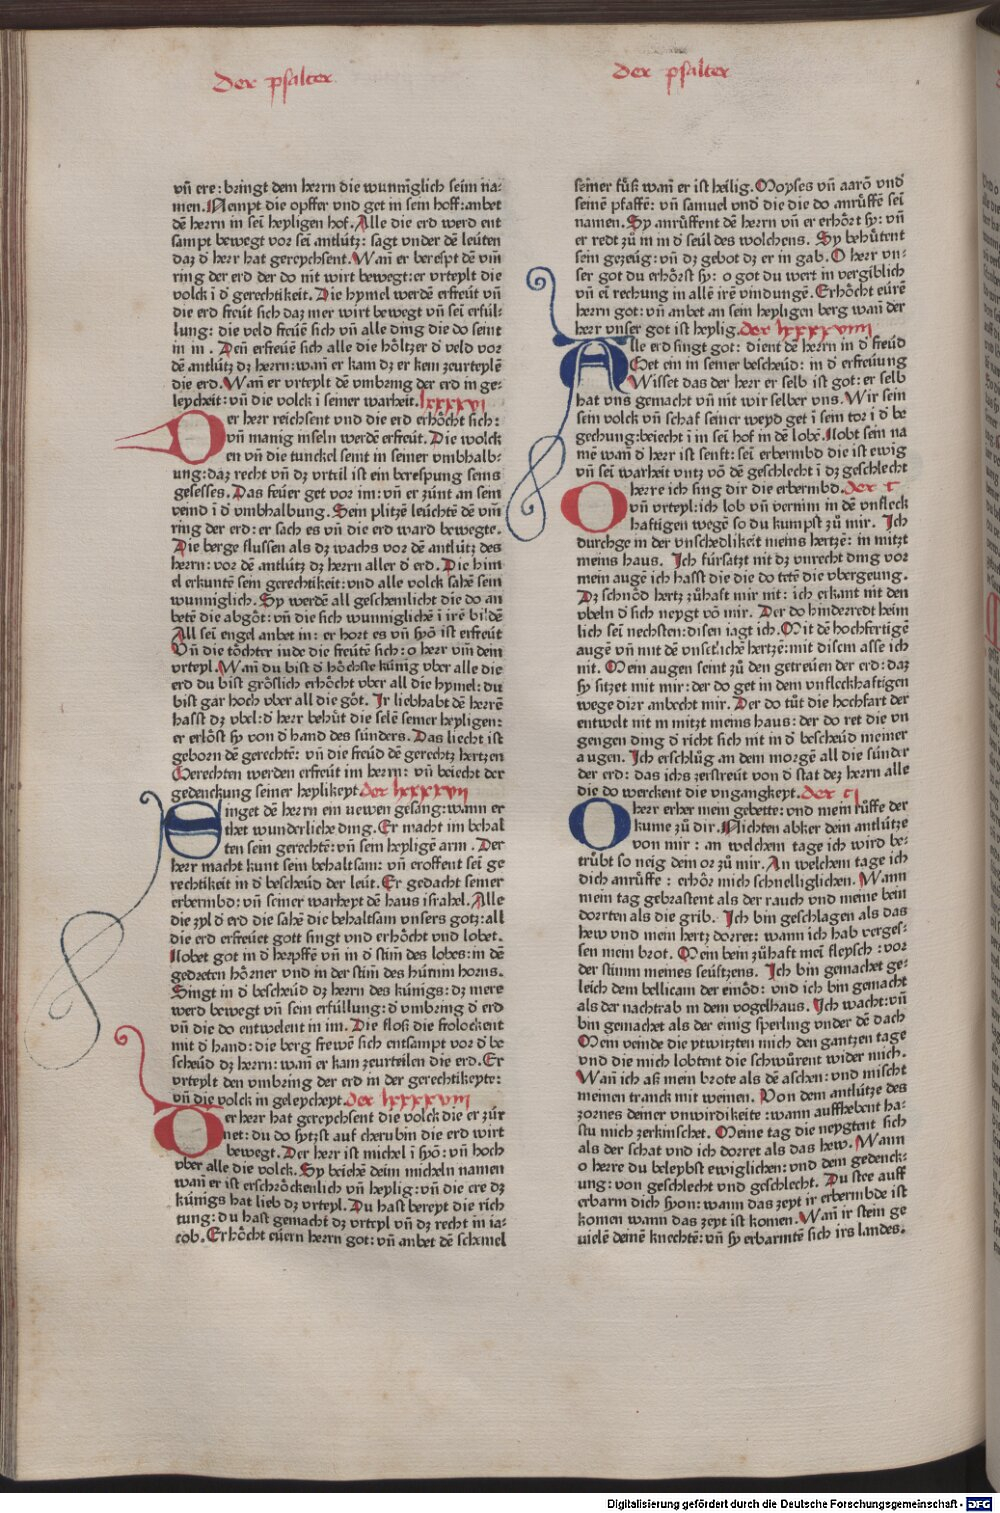 der psalter
der psalter
vñ ere: bringt dem herrn die wunniglich seim na-
men. Nempt die opffer vnd get in sein hoff: anbet
dē herrn in sei heyligen hof. Alle die erd werd ent
sampt bewegt vor sei antlútz: sagt vnder dē leúten
daz d' herr hat gereychsent. Wañ er berespt dē vm
ring der erd der do nit wirt bewegt: er vrteylt die
volck ī d' gerechtikeit. Die hymel werdē erfreút vñ
die erd freút sich daz mer wirt bewegt vñ sei erfúl-
lung: die veld freúē sich vñ alle ding die do seint
in in. Deñ erfreúē sich alle die hôltzer d' veld vor
dē antlútz dz herrn: wañ er kam dz er kem zeurteylē
die erd. Wañ er vrteylt dē vmbring der erd in ge-
leycheit: vñ die volck ī seiner warheit. lxxxxvi
Der herr reichsent vnd die erd erhôcht sich:
vñ manig inseln werdē erfreút. Die wolck
en vñ die tunckel seint in seiner vmbhalb-
ung: daz recht vñ dz vrteil ist ein berespung seins
gesesses. Das feúer get vor im: vñ er zúnt an sein
veind ī d' vmbhalbung. Sein plitzē leúchtē dē vm
ring der erd: er sach es vñ die erd ward bewegte.
Die berge flussen als dz wachs vor dē antlútz des
herrn: vor dē antlútz dz herrn aller d' erd. Die him
el erkuntē sein gerechtikeit: vnd alle volck sahē sein
wunniglich. Sy werdē all geschemlicht die do an
betē die abgôt: vñ die sich wunniglichē ī irē bildē
All sei engel anbet in: er hort es vñ syō ist erfreút
Vñ die tôchter iude die freútē sich: o herr vm dein
vrteyl. Wañ du bist d' hôchste kúnig vber alle die
erd du bist grôslich erhôcht vber all die hymel: du
bist gar hoch vber all die gôt. Ir liebhabt dē herrē
hasst dz vbel: d' herr behút die selē seiner heyligen:
er erlôst sy von d' hand des súnders. Das liecht ist
geborn dē gerechtē: vñ die freúd dē gerechtz hertzen
Gerechten werden erfreút im herrn: vñ beiecht der
gedenckung seiner heylikeyt. der lxxxxvii
Singet dē herrn ein newen gesang: wann er
thet wunderliche ding. Er macht im behal
ten sein gerechtē: vñ sein heyligē arm. Der
herr macht kunt sein behaltsam: vñ eroffent sei ge
rechtikeit in d' bescheúd der leút. Er gedacht seiner
erbermbd: vñ seiner warheyt dē haus israhel. Alle
die zyl d' erd die sahē die behaltsam vnsers gotz: all
die erd erfreúet gott singt vnd erhôcht vnd lobet.
Lobet got in d' herpffē vñ in d' stim des lobes: in dē
gedreten hôrner vnd in der stim des húrnin horns.
Singt in d' bescheúd dz herrn des kúnigs: dz mere
werd bewegt vñ sein erfúllung: d' vmbring d' erd
vñ die do entwelent in im. Die floß die frolockent
mit d' hand: die berg frewē sich entsampt vor d' be
scheúd dz herrn: wañ er kam zeurteilen die erd. Er
vrteylt den vmbring der erd in der gerechtikeyte:
vñ die volck in geleycheyt. der lxxxxviii
Der herr hat gereychsent die volck die er zúr
net: du do sytzst auf cherubin die erd wirt
bewegt. Der herr ist michel ī syō: vñ hoch
vber alle die volck. Sy beichē deim micheln namen
wañ er ist erschrôckenlich vñ heylig: vñ die ere dz
kúnigs hat lieb dz vrteyl. Du hast bereyt die rich
tung: du hast gemacht dz vrteyl vñ dz recht in ia-
cob. Erhôcht eúern herrn got: vñ anbet dē schemel
seiner fúß wañ er ist heilig. Moyses vñ aarō vnd
seinē pfaffē: vñ samuel vnd die die do anrúffē sei
namen. Sy anrúffent dē herrn vñ er erhôrt sy: vñ
er redt zú in in d' seúl des wolchens. Sy behútent
sein gezeúg: vñ dz gebot dz er in gab. O herr vn-
ser got du erhôrst sy: o got du wert in vergiblich
vñ ei rechung in allē irē vindungē. Erhôcht eúrē
herrn got: vñ anbet an sein heyligen berg wañ der
herr vnser got ist heylig. der lxxxxviiii
Alle erd singt got: dient dē herrn in d' freúd
Get ein in seiner bescheúd: in d' erfreúung
Wisset das der herr er selb ist got: er selb
hat vns gemacht vñ nit wir selber vns. Wir sein
sein volck vñ schaf seiner weyd get ī sein tor ī d' be
gechung: beiecht ī in sei hof in dē lobē. Lobt sein na
mē wañ d' herr ist senft: sei erbermbd die ist ewig
vñ sei warheit vntz vō dē geschlecht ī dz geschlecht
O herre ich sing dir die erbermbd. der c
vñ vrteyl: ich lob vñ vernim in dē vnfleck
hafftigen wegē so du kumpst zú mir. Ich
durchge in der vnschedlikeit meins hertzē: in mitzt
meins haus. Ich fúrsatzt nit dz vnrecht ding vor
mein augē ich hasst die die do tetē die vbergeung.
Dz schnôd hertz zúhaft mir nit: ich erkant nit den
vbeln d' sich neygt vō mir. Der do hinderredt heim
lich sei nechsten: disen iagt ich. Mit dē hochfertigē
augē vñ mit dē vnsetlichē hertzē: mit disem asse ich
nit. Mein augen seint zú den getreúen der erd: daz
sy sitzet mit mir: der do get in dem vnfleckhaftigen
wege dirr anbecht mir. Der do tút die hochfart der
entwelt nit in mitzt meins haus: der do ret die vn
gengen ding d' richt sich nit in d' bescheúd meiner
augen. Ich erschlúg an dem morgē all die súnder
der erd: das ichs zerstreút von d' stat dez herrn alle
die do werckent die vngangkeyt. der ci
O herr erher mein gebette: vnd mein rúffe der
kume zú dir. Nichten abker dein antlútze
von mir: an welchem tage ich wird be-
trúbt so neig dein or zú mir. An welchem tage ich
dich anrúffe: erhôr mich schnelliglichen. Wann
mein tag gebrastent als der rauch vnd meine bein
dorrten als die grib. Ich bin geschlagen als das
hew vnd mein hertz dorret: wann ich hab verges-
sen mein brot. Mein bein zúhaft mei fleysch: vor
der stimm meines seústzens. Ich bin gemachet ge-
leich dem bellicam der einôd: vnd ich bin gemacht
als der nachtrab in dem vogelhaus. Ich wacht: vñ
bin gemachet als der einig sperling vnder dē dach
Mein veinde die ytwitzten mich den gantzen tage
vnd die mich lobtent die schwúrent wider mich.
Wañ ich aß mein brote als dē aschen: vnd mischt
meinen tranck mit weinen. Von dem antlútze des
zornes deiner vnwirdikeite: wann auffhebent ha-
stu mich zerkinschet. Meine tag die neygtent sich
als der schat vnd ich dorret als das hew. Wann
o herre du beleybst ewiglichen: vnd dem gedenck-
ung: von geschlecht vnd geschlecht. Du stee auff
erbarm dich syon: wann das zeyt ir erbermbde ist
komen wann das zeyt ist komen. Wañ ir stein ge
vielē deinē knechtē: vñ sy erbarmtē sich irs landes.
Digitalisierung gefördert durch die Deutsche Forschungsgemeinschaft - DFG